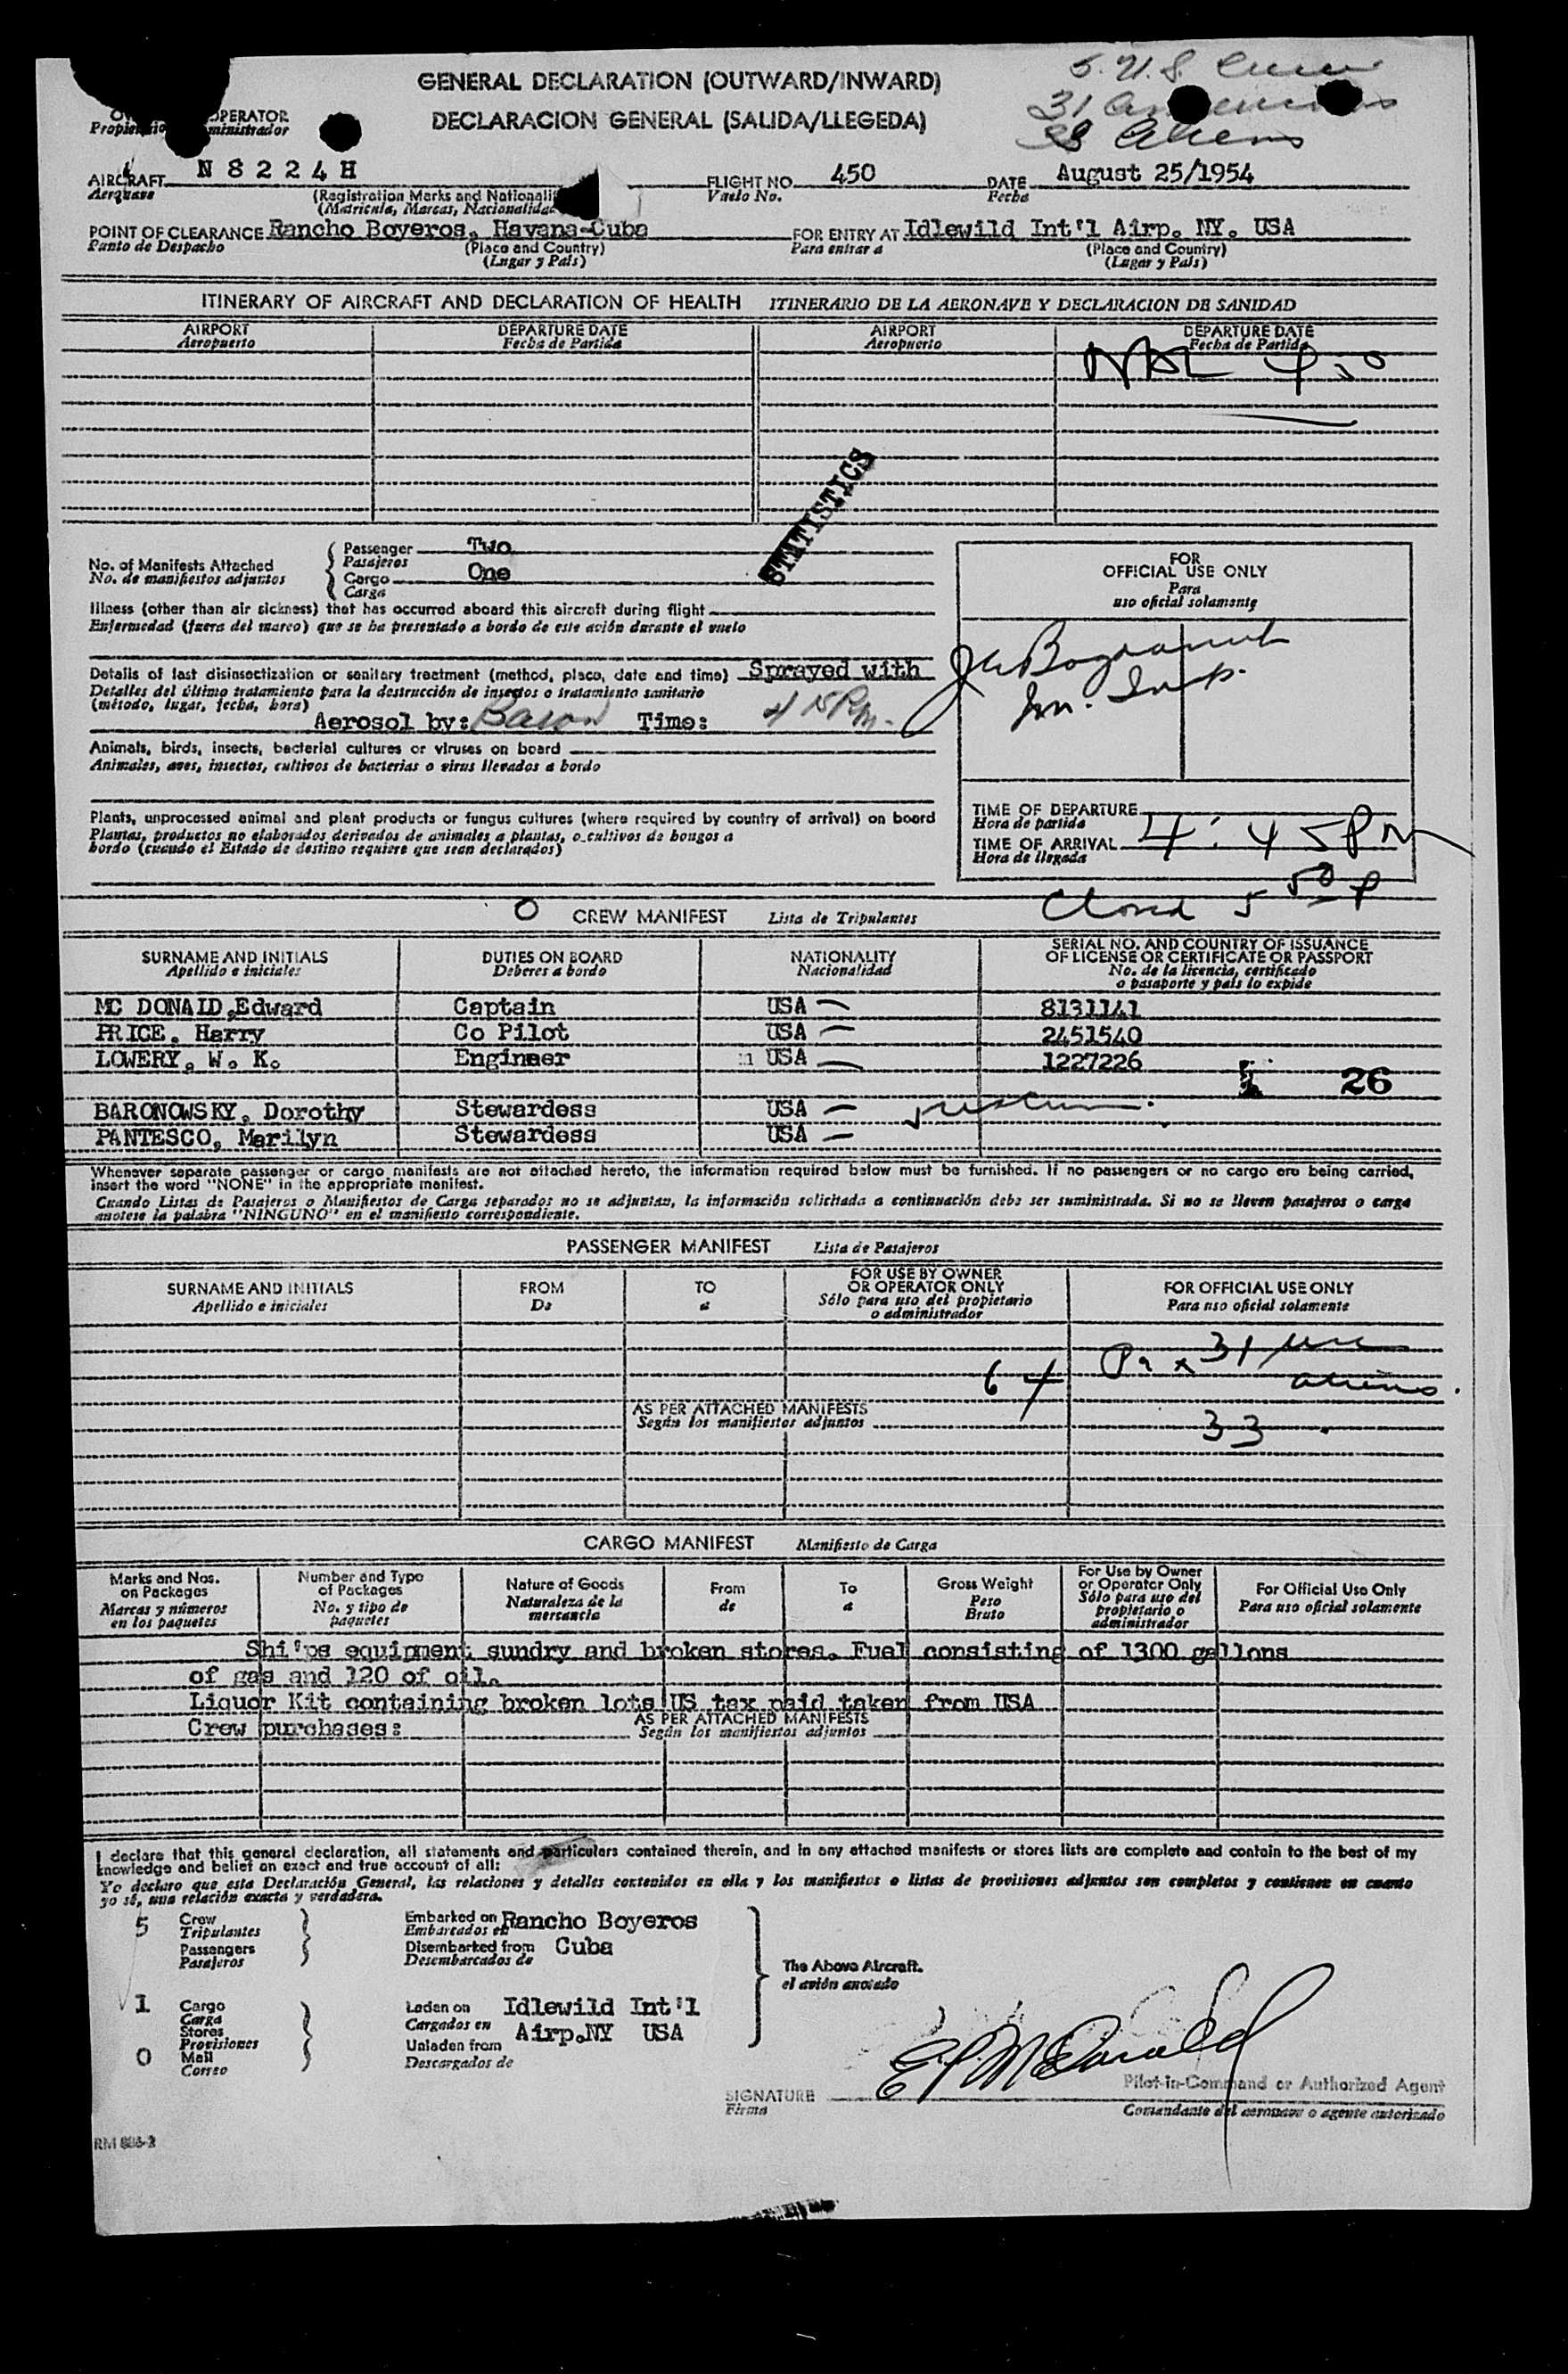 GENERAL DECLARATION (OUTWARD/INWARD)
DECLARACION GENERAL (SALIDA/LLEGEDA)
5. U.S.
31
33 Aliens
OPERATOR
AIRCRAFT N 8 2 2 4 H
Aeronave
(Registration Marks and
(Matricula, Marcas,
FLIGHT NO. 450
Vuelo No.
DATE August 25/1954
Fecha
POINT OF CLEARANCE Rancho Boyeros, Havana-Cuba
Punto de Despacho
(Place and Country)
(Lugar y País)
FOR ENTRY AT Idlewild Int'l Airp. NY. USA
Para entrar a
(Place and Country)
(Lugar y País)
ITINERARY OF AIRCRAFT AND DECLARATION OF HEALTH ITINERARIO DE LA AERONAVE Y DECLARACION DE SANIDAD
AIRPORT DEPARTURE DATE AIRPORT DEPARTURE DATE
Aeropuerto Fecha de Partida Aeropuerto Fecha de Partida
NAL 450
STATISTICS
No. of Manifests Attached
No. de manifiestos adjuntos
Passenger Two
Pasajeros
Cargo One
Carga
Illness (other than air sickness) that has occurred aboard this aircraft during flight
Enfermedad (fuera del mareo) que se ha presentado a bordo de este avión durante el vuelo
Details of last disinsectization or sanitary treatment (method, place, date and time) Sprayed with
Detalles del último tratamiento para la destrucción de insectos o tratamiento sanitario
(método, lugar, fecha, hora)
Aerosol by: Baron Time: 4 15 Pm.
Animals, birds, insects, bacterial cultures or viruses on board
Animales, aves, insectos, cultivos de bacterias o virus llevados a bordo
Plants, unprocessed animal and plant products or fungus cultures (where required by country of arrival) on board
Plantas, productos no elaborados derivados de animales a plantas, o cultivos de hongos a
bordo (cuando el Estado de destino requiere que sean declarados)
FOR
OFFICIAL USE ONLY
Para
uso oficial solamente
Imm. Insp.
TIME OF DEPARTURE
Hora de partida
TIME OF ARRIVAL 4:45 PM
Hora de llegada
Closed 5 50 P
O CREW MANIFEST Lista de Tripulantes
SURNAME AND INITIALS DUTIES ON BOARD NATIONALITY SERIAL NO. AND COUNTRY OF ISSUANCE
OF LICENSE OR CERTIFICATE OR PASSPORT
Apellido e iniciales Deberes a bordo Nacionalidad No. de la licencia, certificado
o pasaporte y país lo expide
MC DONALD,Edward Captain USA 8131141
PRICE, Harry Co Pilot USA 2451540
LOWERY, W. K. Engineer USA 1227226
26
BARONOWSKY, Dorothy Stewardess USA
PANTESCO, Marilyn Stewardess USA
Whenever separate passenger or cargo manifests are not attached hereto, the information required below must be furnished. If no passengers or no cargo are being carried,
insert the word "NONE" in the appropriate manifest.
Cuando Listas de Pasajeros o Manifiestos de Carga separados no se adjuntan, la información solicitada a continuación debe ser suministrada. Si no se lleven pasajeros o carga
anotese la palabra "NINGUNO" en el manifiesto correspondiente.
PASSENGER MANIFEST Lista de Pasajeros
SURNAME AND INITIALS FROM TO FOR USE BY OWNER
OR OPERATOR ONLY FOR OFFICIAL USE ONLY
Apellido e iniciales De a Sólo para uso del propietario
o administrador Para uso oficial solamente
64 Pax 31
aliens
33
AS PER ATTACHED MANIFESTS
Según los manifiestos adjuntos
CARGO MANIFEST Manifiesto de Carga
Marks and Nos.
on Packages
Marcas y números
en los paquetes
Number and Type
of Packages
No. y tipo de
paquetes
Nature of Goods
Naturaleza de la
mercancia
From
de
To
a
Gross Weight
Peso
Bruto
For Use by Owner
or Operator Only
Sólo para uso del
propietario o
administrador
For Official Use Only
Para uso oficial solamente
Shi'ps equipment sundry and broken stores. Fuel consisting of 1300 gallons
of gas and 120 of oil.
Liquor Kit containing broken lots US tax paid taken from USA
Crew purchases:
AS PER ATTACHED MANIFESTS
Según los manifiestos adjuntos
I declare that this general declaration, all statements and particulars contained therein, and in any attached manifests or stores lists are complete and contain to the best of my
knowledge and belief an exact and true account of all:
Yo declaro que esta Declaración General, las relaciones y detalles contenidos en ella y los manifiestos o listas de provisiones adjuntos son completos y contienen en cuanto
yo sé, una relación exacta y verdadera.
5 Crew
Tripulantes
Passengers
Pasajeros
Embarked on Rancho Boyeros
Embarcados en
Disembarked from Cuba
Desembarcados de
1 Cargo
Carga
Stores
Provisiones
0 Mail
Correo
Laden on Idlewild Int'l
Cargados en Airp.NY USA
Unladen from
Descargados de
The Above Aircraft.
el avión anotado
SIGNATURE E.P. McDonald
Firma
Pilot-in-Command or Authorized Agent
Comandante del aeronave o agente autorizado